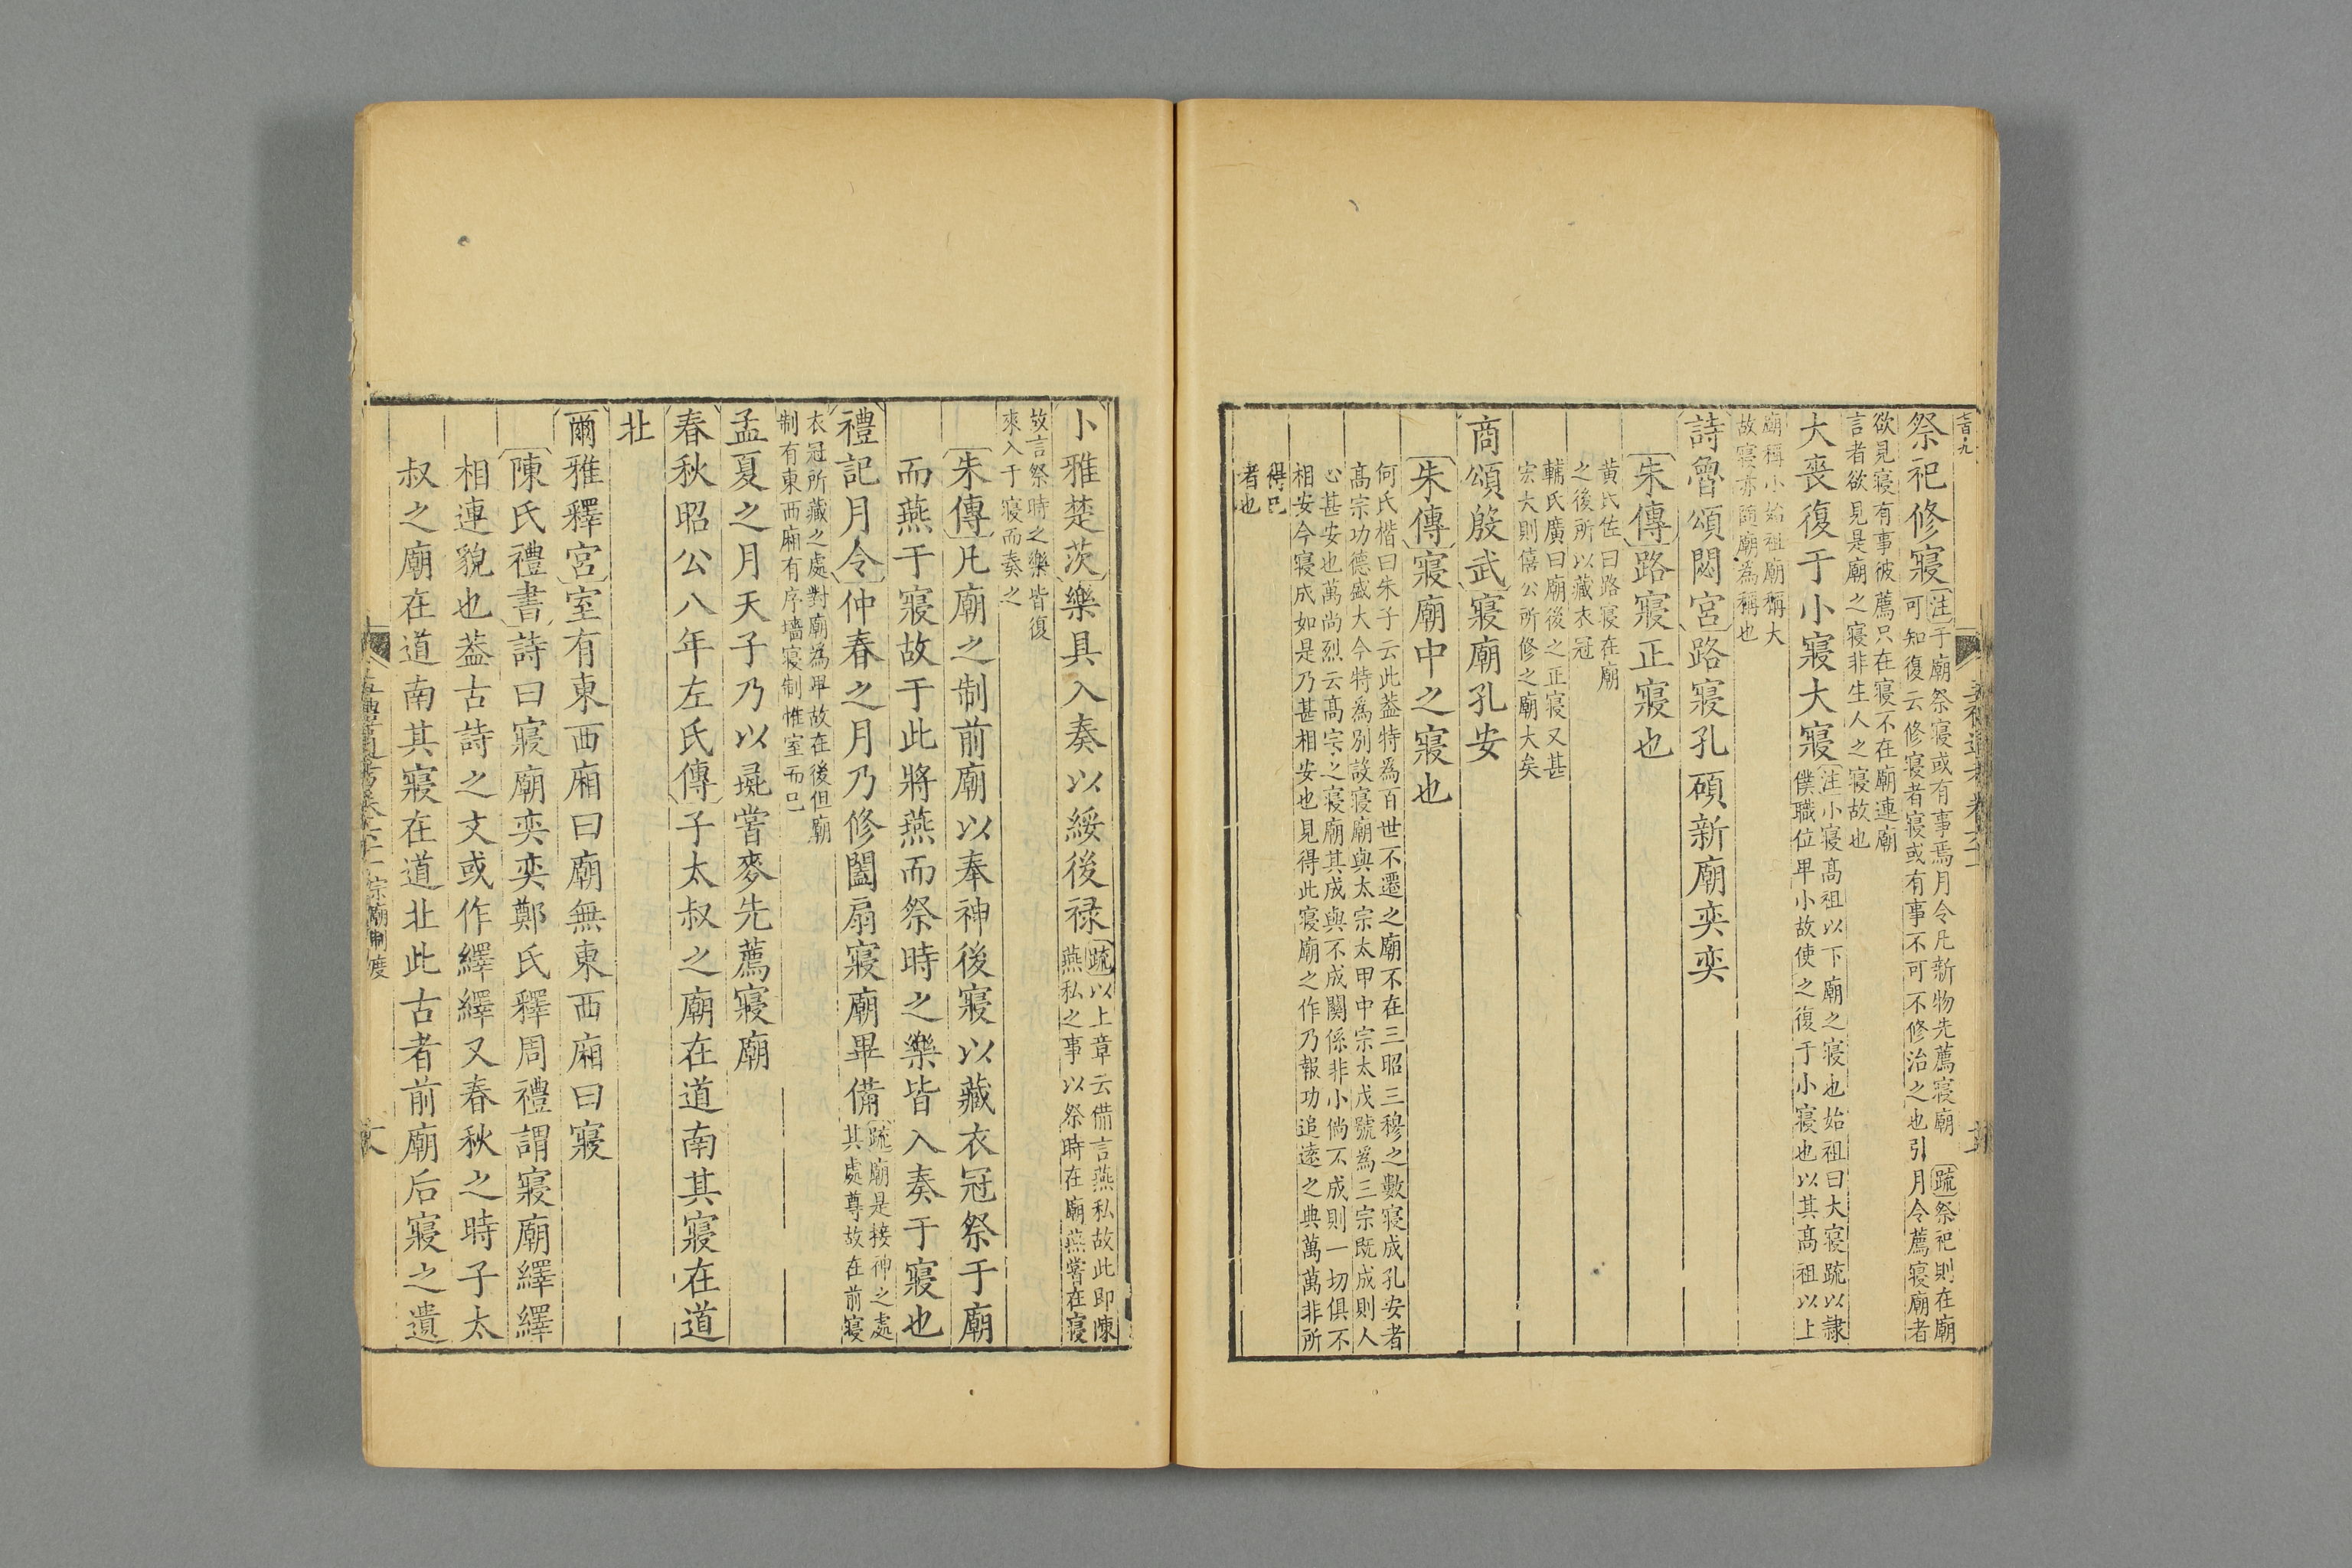 祭祀修寢注于廟祭寢或有事焉月令凡新物先薦寢廟 疏祭祀則在廟
可知復云修寢者寢或有事不可不修治之也引月令薦寢廟者
欲見寢有事彼薦只在寢不在廟連廟
言者欲見是廟之寢非生人之寢故也
大喪復于小寢大寢注小寢高祖以下廟之寢也始祖曰大寢疏以隷
僕職位卑小故使之復于小寢也以其高祖以上
廟稱小始祖廟稱大
故寢亦隨廟為稱也
詩魯頌閟宮路寢孔碩新廟奕奕
朱傳路寢正寢也
黄氏佐曰路寢在廟
之後所以藏衣冠
輔氏廣曰廟後之正寢又甚
宏大則僖公所修之廟大矣
商頌殷武寢廟孔安
朱傳寢廟中之寢也
何氏楷曰朱子云此葢特為百世不遷之廟不在三昭三穆之數寢成孔安者
高宗功德盛大今特為別設寢廟與太宗太甲中宗太戊號為三宗既成則人
心甚安也萬尚烈云高宗之寢廟其成與不成關係非小倘不成則一切俱不
相安今寢成如是乃甚相安也見得此寢廟之作乃報功追遠之典萬萬非所
得已
者也
小雅楚茨樂具入奏以綏後禄疏以上章云備言燕私故此即陳
燕私之事以祭時在廟燕嘗在寢
故言祭時之樂皆復
來入于寢而奏之
朱傳凡廟之制前廟以奉神後寢以藏衣冠祭于廟
而燕于寢故于此將燕而祭時之樂皆入奏于寢也
禮記月令仲春之月乃修闔扇寢廟畢備疏廟是接神之處
其處尊故在前寢
衣冠所藏之處對廟為卑故在後但廟
制有東西廂有序墻寢制惟室而已
孟夏之月天子乃以彘嘗麥先薦寢廟
春秋昭公八年左氏傳子太叔之廟在道南其寢在道
北
爾雅釋宮室有東西廂曰廟無東西廂曰寢
陳氏禮書詩曰寢廟奕奕鄭氏釋周禮謂寢廟繹繹
相連貌也葢古詩之文或作繹繹又春秋之時子太
叔之廟在道南其寢在道北此古者前廟后寢之遺
五禮通考卷六十一 宗廟制度